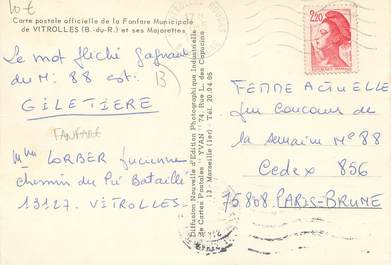 10€
Carte postale officielle de la Fanfare Municipale
de VITROLLES (B.-du-R.) et ses Majorettes
Le mot fléché gagnant
du N: 88 est:
GILETIERE
13
FANFARE
Mme LORBER Lucienne
chemin du Pié Bataillé
13127. VITROLLES
Diffusion Nouvelle d'Edition Photographique Industrielle
de Cartes Postales "YVAN" 74, Rue L. des Capucins
13 - Marseille (1er) - Tél. 20.04.05
2,20
FEMME ACTUELLE
Jeu Concours de
la semaine N° 88
Cedex 856
75808 PARIS-BRUNE